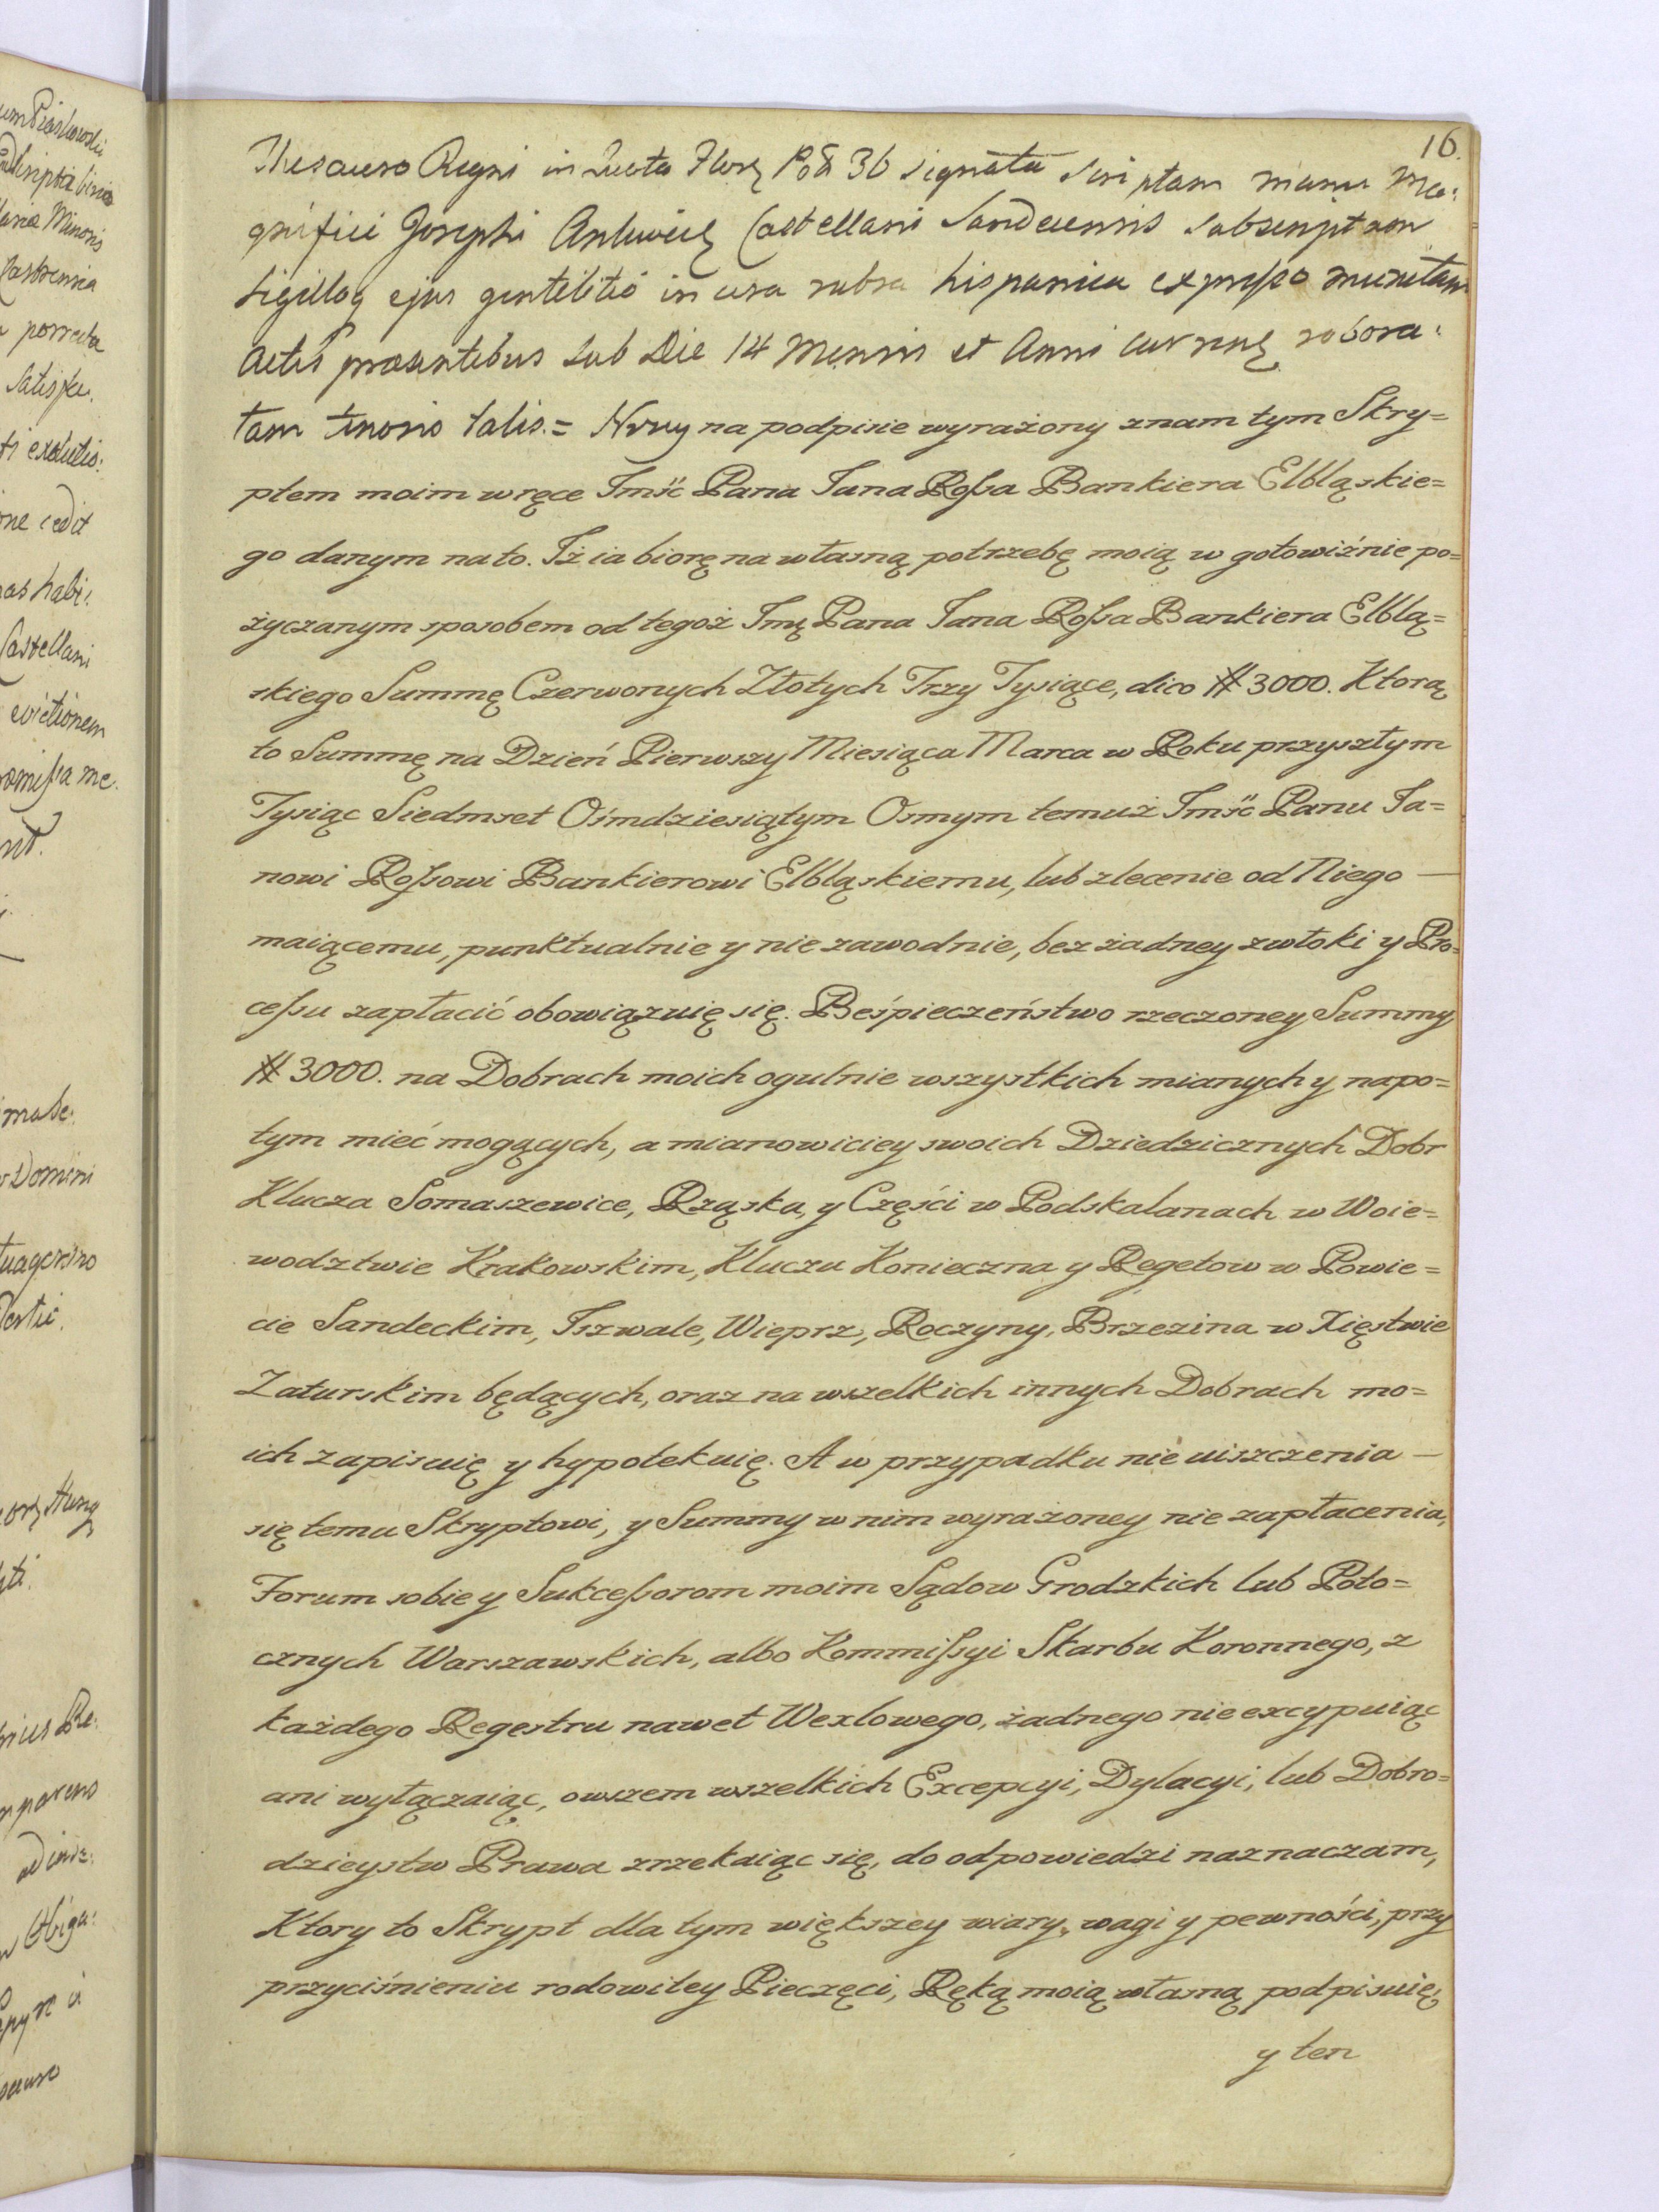 16.
Thesauro Regni in Quota Flor. Pol. 36 signata scriptam manu Ma:
gnifici Josephi Ankwicz Castellani Sandecensis subscriptam
Sigilloq ejus gentilitio in cera rubra hispanica expresso munitam
Actis praesentibus sub Die 14 Mensis et Anni curren. robora:
tam tenoris talis. = Niżey na podpisie wyrażony znam tym Skry=
ptem moim w ręce Jmść Pana Jana Roſsa Bankiera Elbląskie=
go danym na to. Jż ia biorę na własną potrzebę moią w gotowiźnie po=
życzanym sposobem od tegoż Jmę Pana Jana Roſsa Bankiera Elblą=
skiego Summę Czerwonych Złotych Trzy Tysiące, dico # 3000. Ktorą
to Summę na Dzień Pierwszy Miesiąca Marca w Roku przyszłym
Tysiąc Siedmset Ośmdziesiątym Osmym temuż Jmść Panu Ja=
nowi Roſsowi Bankierowi Elbląskiemu, lub zlecenie od Niego —
maiącemu, punktualnie y nie zawodnie, bez żadney zwłoki y Pro=
ceſsu zapłacić obowiązuię się. Beśpieczeństwo rzeczoney Summy
# 3000. na Dobrach moich ogulnie wszystkich mianych y napo=
tym mieć mogących, a mianowiciey swoich Dziedzicznych Dobr
Klucza Somaszewice, Rząska, y Części w Podskalanach w Woie=
wodztwie Krakowskim, Kluczu Konieczna y Regetow w Powie=
cie Sandeckim, Jnwałe, Wieprz, Roczyny, Brzezina w Xięstwie
Zaturskim będących, oraz na wszelkich innych Dobrach mo=
ich zapisuię y hypotekuię. A w przypadku nie uiszczenia —
się temu Skryptowi, y Summy w nim wyrażoney nie zapłacenia,
Forum sobie y Sukceſsorom moim Sądow Grodzkich lub Poto=
cznych Warszawskich, albo Kommiſsyi Skarbu Koronnego, z
każdego Regestru nawet Wexlowego, żadnego nie excypuiąc
ani wyłączaiąc, owszem wszelkich Excepcyi, Dylacyi, lub Dobro=
dzieystw Prawa zrzekaiąc się, do odpowiedzi naznaczam,
Ktory to Skrypt dla tym większey wiary, wagi y pewności, przy
przyciśnieniu rodowitey Pieczęci, Ręką moią własną podpisuię,
y ten